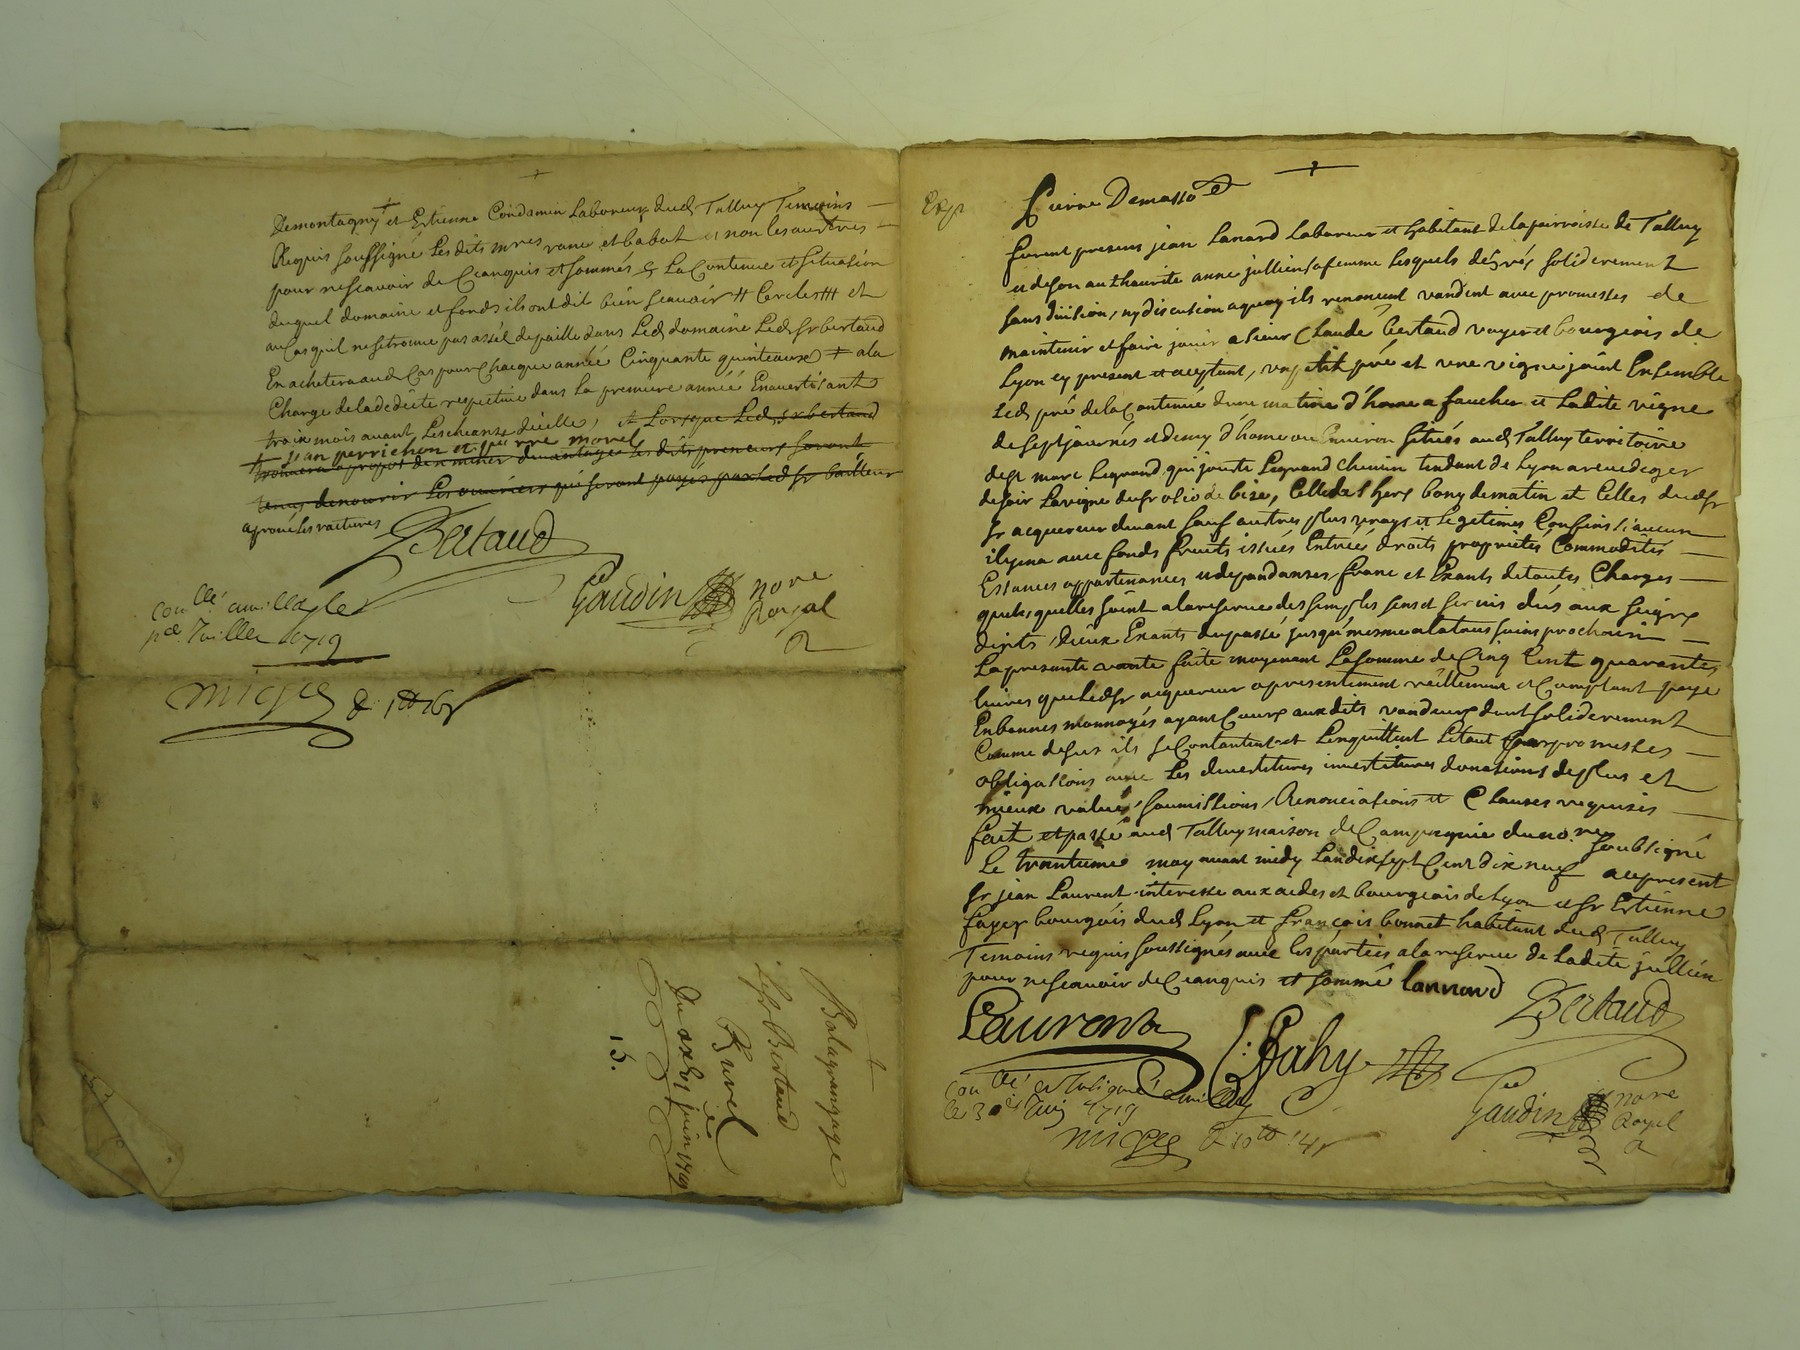 Demontagny et Estienne Condamin Laboureux dud Talluy Temoins
Requis soussigné Les dits mres rane et babat et non les autres
pour ne scavoir de Ceanquis et sommés & La Contenue et situasion
duquel domaine et fonds ils ont dit bien scavoir # Cercler ## et
au Cas quil ne se trouve pas assés de paille dans Led domaine Led sr bertaud
En achetera aud Cas pour Chacque année Cinquante quinteaux # a la
Charge de la dedite respective dans La premiere année En avertissant
trois mois avant Lescheance dicelle, et Lorsque Led sr bertaud
# jean perrichon et pierre morel
trouvera apropos de miner davantage les dits preneurs seront
tenus denourir Les ouvriers qui seront payés par led sr bailleur
aprouvé les ratures
Bertaud
Gaudin nore
Royal
conllé
juillet 1719
Balagrangage
Le sr Bertaud
du juin 1719
15.
Exp
Pierre Demasso
furent presens jean Lanard Laboureur et habitant de la parroisse de Talluy
et de son authaurité anne jullien sa femme Lesquels de grés soliderement
sans division, ny discution a quoy ils renoncent vandent avec promesses de
maintenir et faire jouir a sieur Claude bertaud voyer et bourgeois de
Lyon cy present et aceptant, un petit pré et une vigne joint Ensemble
Led pré de la Contenue dune matine d'home a faucher et Ladite vigne
de sept journés et demy d'home ou Environ situés aud Talluy territoire
de st marc Legrand qui jouste Legrand Chemin tendant de Lyon a rivedegier
de soir La vigne du sr olio de bize, Celle de s hers bony de matin et Celles dud sr
sr acquereur devant sauf autres plus vrays et Legetimes Confins si aucun
il y en a avec fonds fruits issues Entrées droits proprietés Commodités
Estances appartenances et dependanses franc et Exants de toutes Charges
quelesquelles soint a la reserve des simples sens et servis dus aux seigrs
direts, dieux Exants du passé jusqu'mesme a la toussains prochain
La presante vante faite moyenant La somme de Cinq Cent quarante
livres que led sr acquereur a presentement reellement et Comptant payé
En bonnes monnoyés ayant Cours aux dits vandeurs dont soliderement
Comme desus ils se Contantent et Lenquittent Letout par promesses
obligassions avec Les devestitures investitures donasions de plus et
mieux value, soumissions, Renonciasions et Clauses requises
fait et passé aud Talluy maison de Campagnie du nore soubsigné
Le trantunie may avant midy Lan dix sept Cent dix neuf au present
sr jean Laurent interesse aux aides et bourgeois de Lyon et sr Estienne
fayey bourgois dud Lyon et françois bonnet habitant dud Talluy
Temoins requis soussignés avec les parties a la reserve de Ladite jullien
pour ne scavoir de Ceanquis et sommé Lannard
Bertaud
Laurent
Gaudin nore
Royal